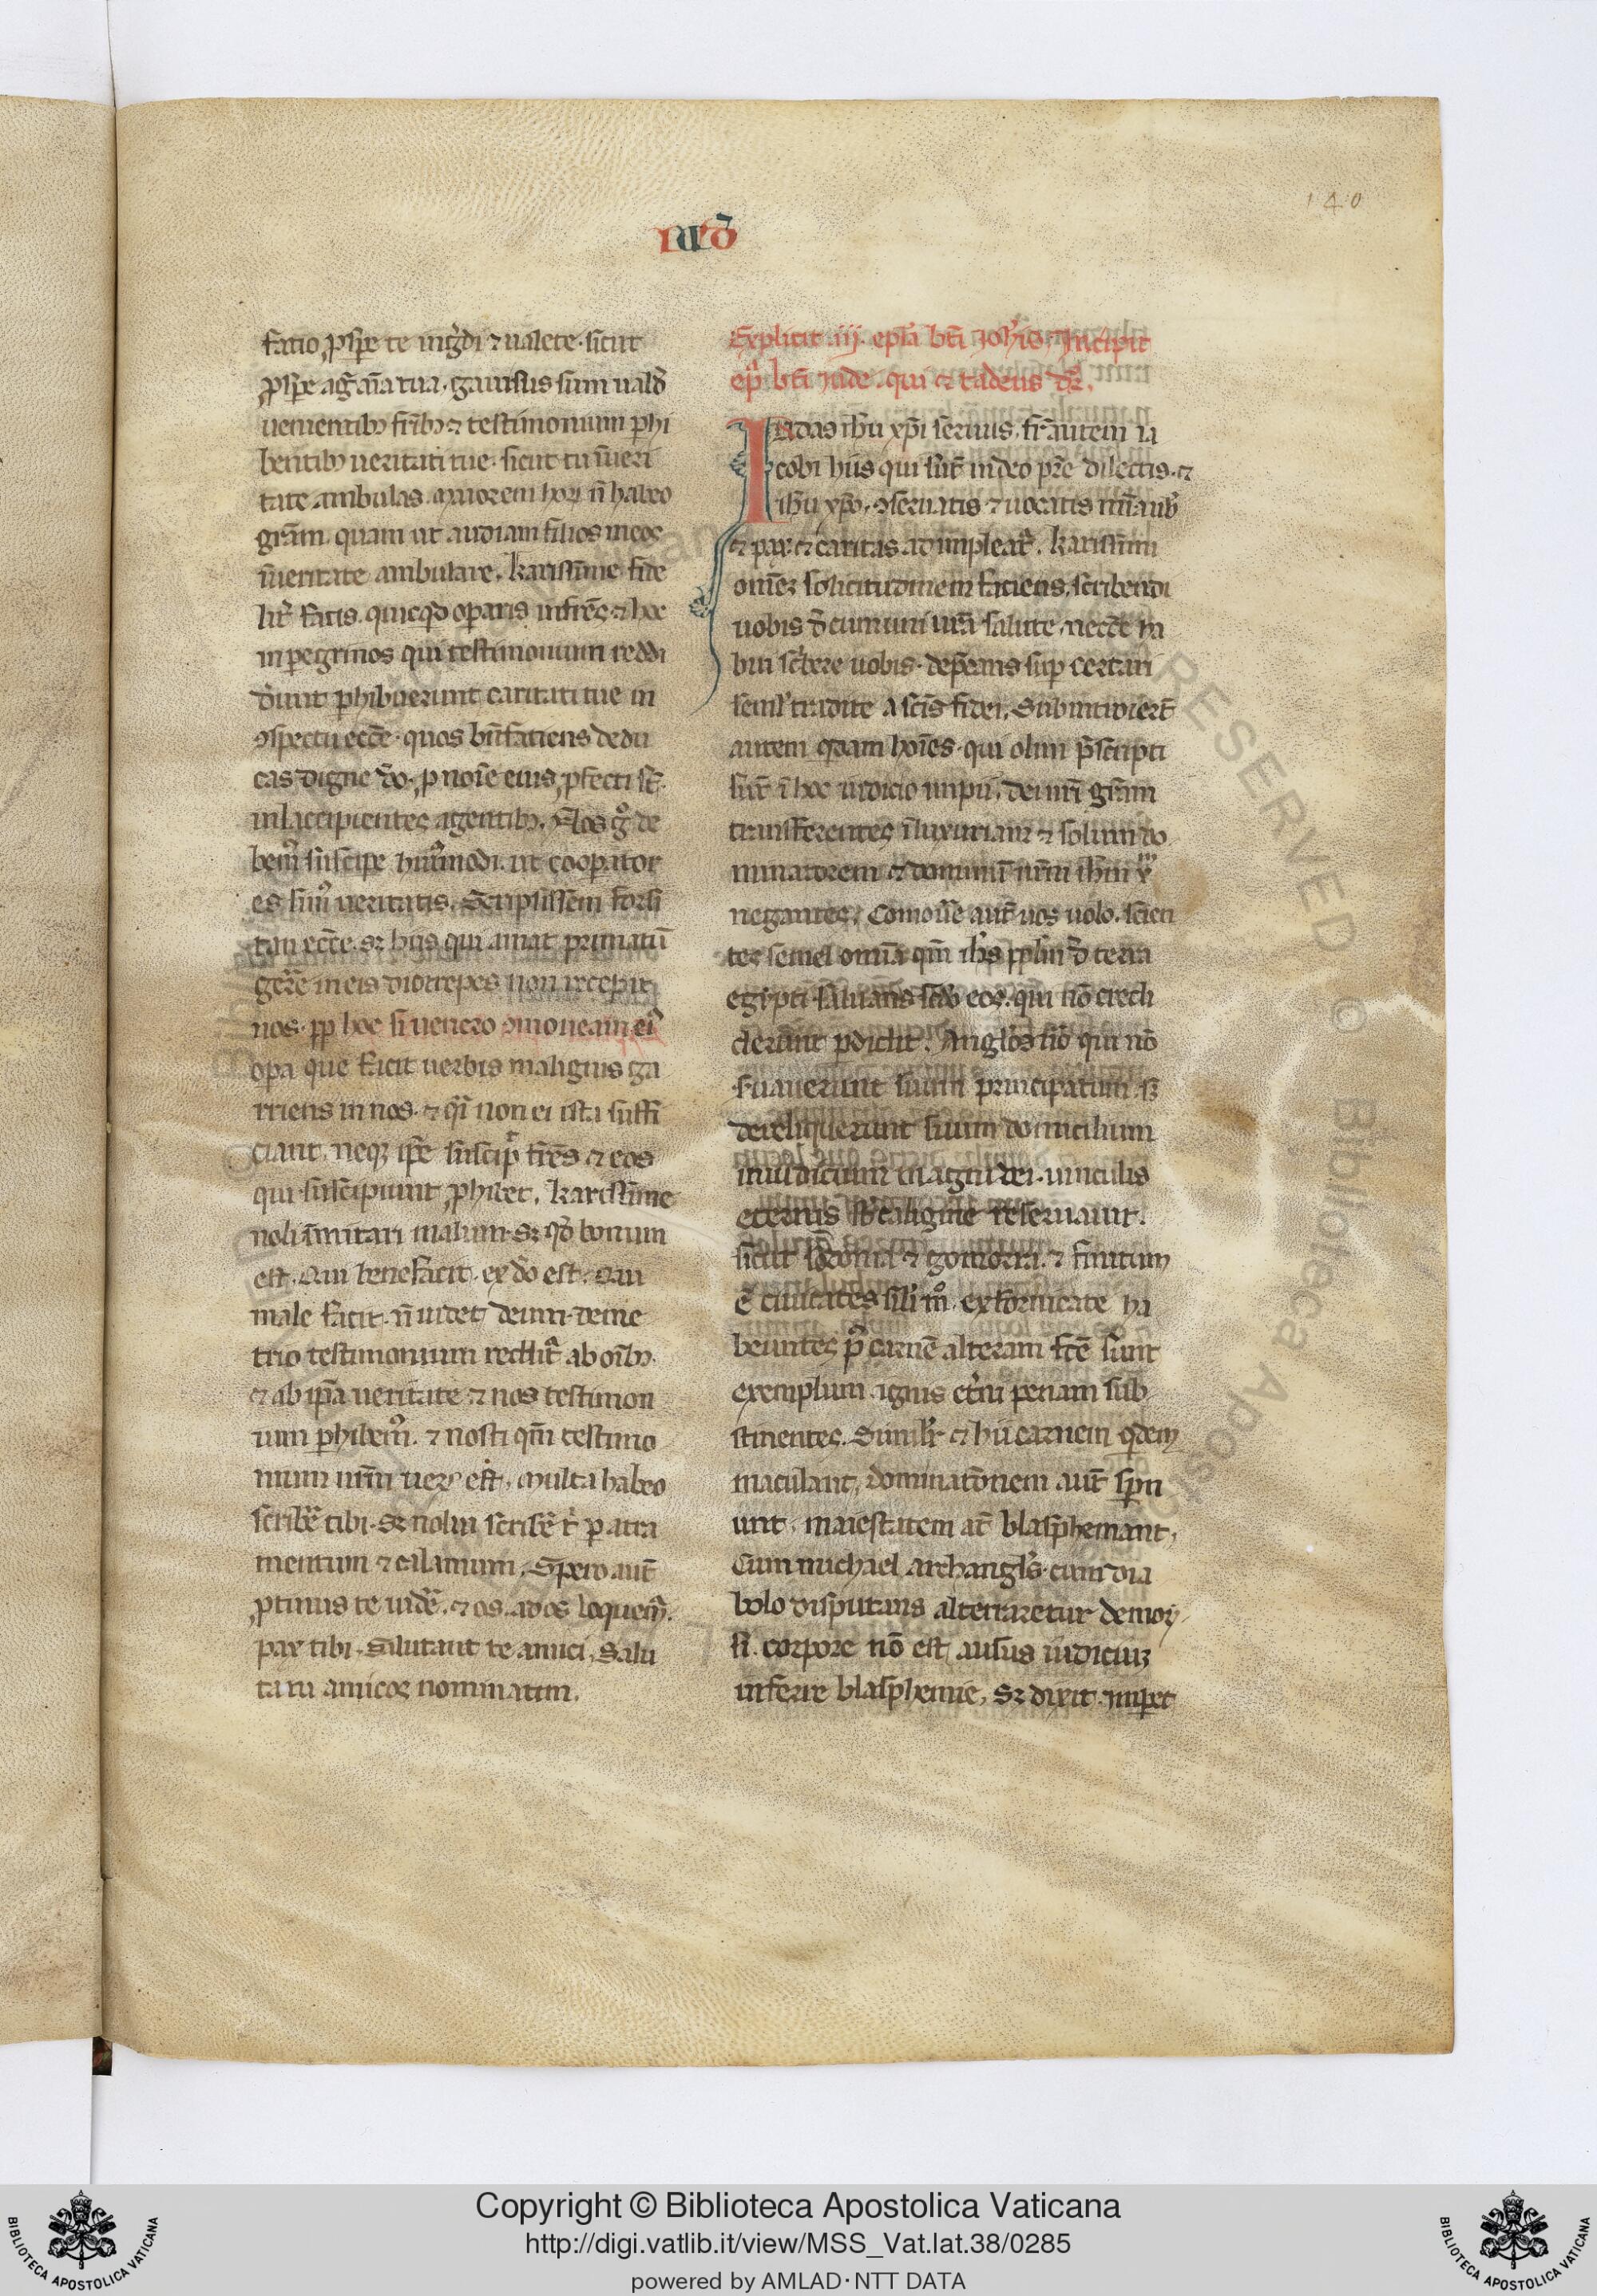 140
IUD
facio ꝓspere te ingͥdi ⁊ ualere. sicut
ꝓspere agit aīa tua. gauisus sum ualde
uenientibꝫ fr̄ibꝫ ⁊ testimonium phi
bentibꝫ ueritati tue. sicut tu ī ueri
tate ambulas. Maiorem hoꝝ ñ habeo
gr̄am. quam ut audiam filios meos
ī ueritate ambulare. karissime fide
lit̄ facis. quicqͥd operaris in fr̄es. ⁊ hoc
in peregrinos qui testimonium reddi
dr̄unt phibuerunt caritati tue in
ↄspectu ecce. quos bn̄faciens dedu
cas digne do. p noīe eius ꝓfecti st̄.
nil accipientes a gentibꝫ. Nos gͦ de
bemꝰ suscipe huiꝰmodi. ut cooperator
es simꝰ ueritatis. Scripsissem forsi
tan ecce. sꝫ hiis qui amat primatū
gerere in eis diotrepes non recepit
nos. ꝓp hoc si uenero ↄmoneam eiꝰ
opa que facit uerbis malignis ga
rriens in nos. ⁊ qͥ non ei ista suffi
ciant. neqꝫ ipse suscipͥt fr̄es ⁊ eos
qui suscipiunt ꝓhibet. karissime
noli īmitari malum. sꝫ qd̄ bonum
est. Qui benefacit. ex do est. Qui
male facit. ñ uidet deum. deme
trio testimonium reddit̄ ab oībꝫ.
⁊ ab ip̄a ueritate ⁊ nos testimon
ium phibemꝰ. ⁊ nosti qm̄ testimo
nium nr̄m uerꝫ est. Multa habeo
scribere tibi. sꝫ nolui scribe t̄ p atra
mentum ⁊ calamum. Spero aut̄
ꝓtinus te uidere. ⁊ os ad os loquemꝰ.
pax tibi. Salutant te amici. Salu
ta tu amicos nominatim.
Explicit .iij. epl̄a bt̄i Joh̄is. Incipit
ep̄a bt̄i iude. qui ⁊ tadeus dr̄.
Iudas ih̄u xp̄i seruus. fr̄ autem ia
cobi hiis qui sūt in deo pr̄e dilectis. ⁊
ih̄u xp̄o. ↄseruatis ⁊ uocatis mīa uob̄
⁊ pax ⁊ caritas adimpleat̄. karissimi
omēꝫ solicitudinem faciens. scribendi
uobis d̄ cumuni ur̄a salute. necce ha
bui scͥbere uobis. dep̄cans sup certari
semel tradite a scīs fidei. Subintroierūt
autem qdam hoīes. qui olim p̄scripti
sūt ī hoc iudicio impii. dei nr̄i gr̄am
transferentes ī luxuriam ⁊ solum do
minatorem ⁊ dominū nr̄m ih̄m x̄m
negantes. Comoūe aut̄ uos uolo. scien
tes semel omīa qm̄ ih̄s ppl̄m d̄ terra
egypti saluans scdo eos. qui nō credi
derunt pdidit. Angl̄os ūo qui nō
s̄uauerunt suum principatum. sꝫ
dereliquerunt suum domicilium
in iudicium magni dei. uinculis
eternis sb̄ caligine reseruauit.
sicut sodoma ⁊ gomorra. ⁊ finitum
e ciuitates sil̄i mͦ. exfornicate ha
beuntes pͦ carnē alteram fcē sunt
exemplum ignis et̄ni penam sub
stinentes. Similit̄ ⁊ hii carnem qͥdem
maculant. dominatōnem aut̄ sper
unt. maiestatem at̄ blasphemant.
Cum michael archangl̄s. cum dia
bolo disputans altercaretur de moy
si corpore nō est ausus iudiciuꝫ
inferre blasphemie. sꝫ dixit. imperet
Copyright © Biblioteca Apostolica Vaticana
http://digi.vatlib.it/view/MSS_Vat.lat.38/0285
powered by AMLAD·NTT DATA
BIBLIOTECA APOSTOLICA VATICANA
BIBLIOTECA APOSTOLICA VATICANA